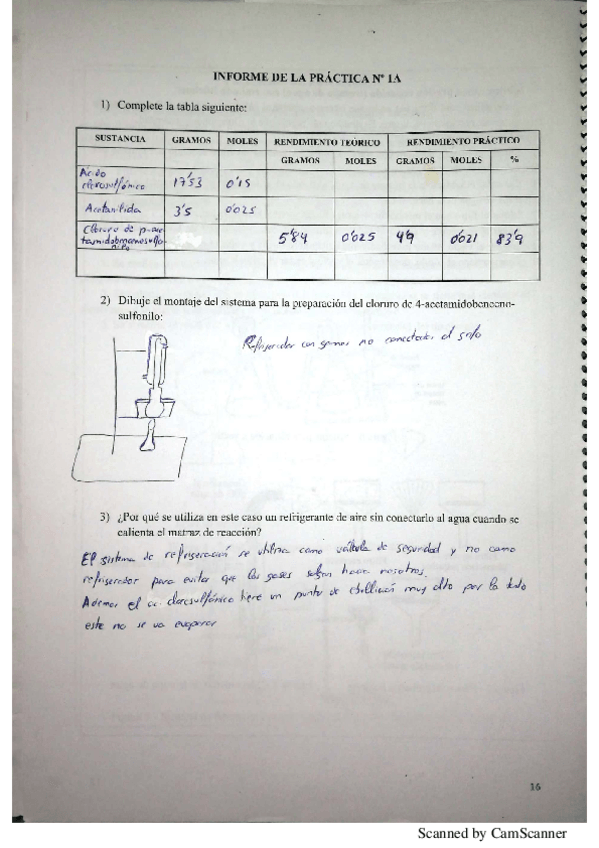 INFORME DE LA PRÁCTICA Nº 1A
1) Complete la tabla siguiente:
SUSTANCIA GRAMOS MOLES RENDIMIENTO TEÓRICO RENDIMIENTO PRÁCTICO
GRAMOS MOLES GRAMOS MOLES %
Ácido
clorosulfónico 17'53 0'15
Acetanilida 3'5 0'025
Cloruro de p-ace
5'84 0'025 4'9 0'021 83'9
2) Dibuje el montaje del sistema para la preparación del cloruro de 4-acetamidobenceno-
sulfonilo:
Refrigerador con gomas no conectadas al grifo
3) ¿Por qué se utiliza en este caso un refrigerante de aire sin conectarlo al agua cuando se
calienta el matraz de reacción?
El sistema de refrigeración se utiliza como válvula de seguridad y no como
refrigerador para evitar que los gases salgan hacia nosotros.
Ademas el ac clorosulfónico tiene un punto de ebullición muy alto por lo tanto
este no se va evaporar
16
Scanned by CamScanner